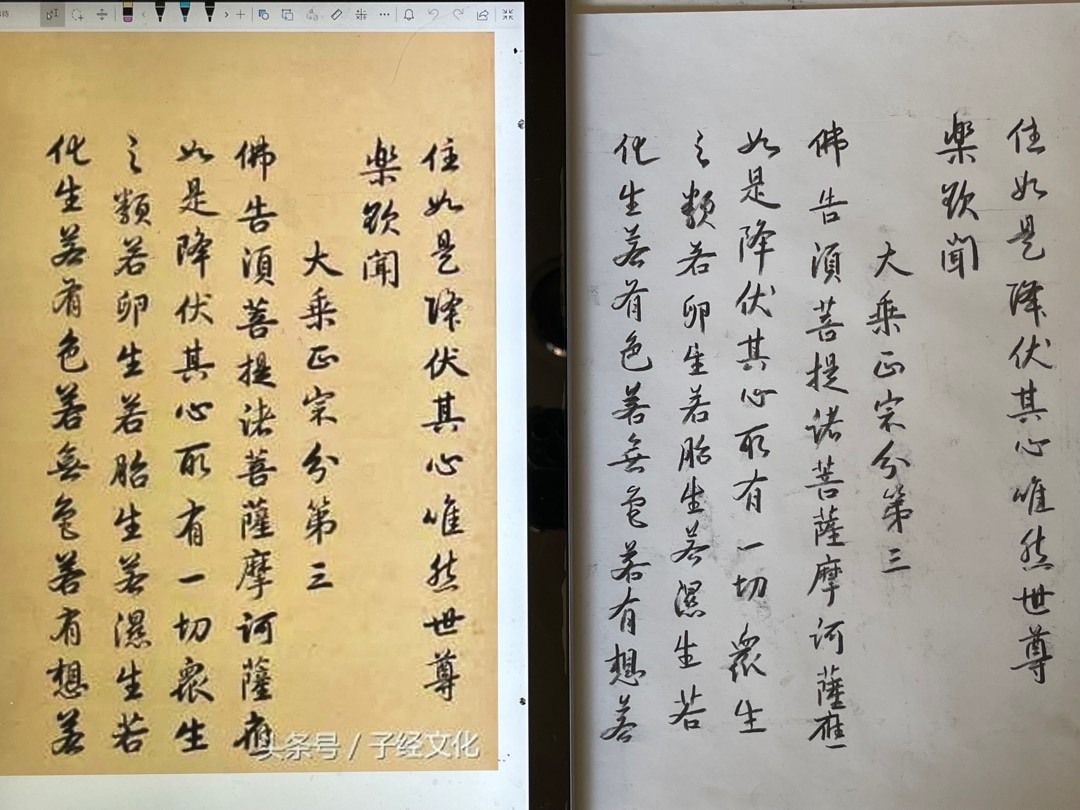 住如是降伏其心唯然世尊
樂欲聞
大乘正宗分第三
佛告須菩提諸菩薩摩訶薩應
如是降伏其心所有一切眾生
之類若卵生若胎生若濕生若
化生若有色若無色若有想若
头条号 / 子经文化
住如是降伏其心唯然世尊
樂欲聞
大乘正宗分第三
佛告須菩提諸菩薩摩訶薩應
如是降伏其心所有一切眾生
之類若卵生若胎生若濕生若
化生若有色若無色若有想若